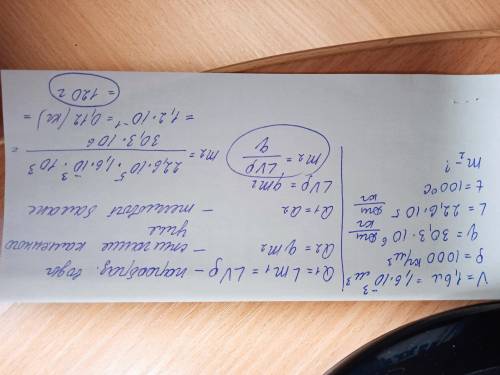 V = 1,6л = 1,6·10⁻³ м³
ρ = 1000 кг/м³
q = 30,3·10⁶ Дж/кг
L = 22,6·10⁵ Дж/кг
t = 100°C
m₂ - ?
Q₁ = Lm₁ = LVρ - парообраз. воды
Q₂ = qm₂ - сжигание каменного угля
Q₁ = Q₂ - тепловой баланс
LVρ = qm₂
m₂ = LVρ/q
m₂ = 22,6·10⁵·1,6·10⁻³·10³/30,3·10⁶ =
= 1,2·10⁻¹ = 0,12 (кг) =
= 120 г